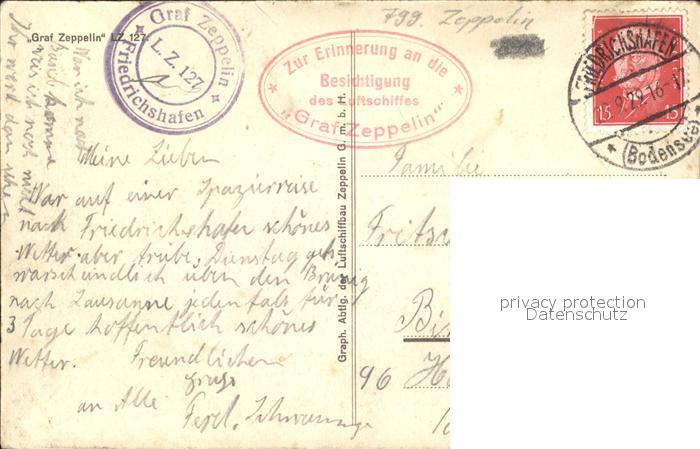 „Graf Zeppelin" LZ 127.
Graf Zeppelin
L.Z.127
Friedrichshafen
799. Zeppelin
Zur Erinnerung an die
Besichtigung
des Luftschiffes
„Graf Zeppelin"
FRIEDRICHSHAFEN
9.29.16-17
(Bodensee)
15 15
Meine Lieben
War auf einer Spazierreise
nach Friedrichshafen schönes
Wetter aber trübe. Dienstag geht
warscheindlich über den Brünig
nach Lausanne jedenfals für
3 Tage hoffentlich schönes
Wetter. Freundlichen
gruss
an Alle
Ferd. Schwarz
War ich noch
Basel komme
war ich noch nicht
Graph. Abtlg. des Luftschiffbau Zeppelin G. m. b. H.
Familie
Fritsc
Bi
96 H
privacy protection
Datenschutz